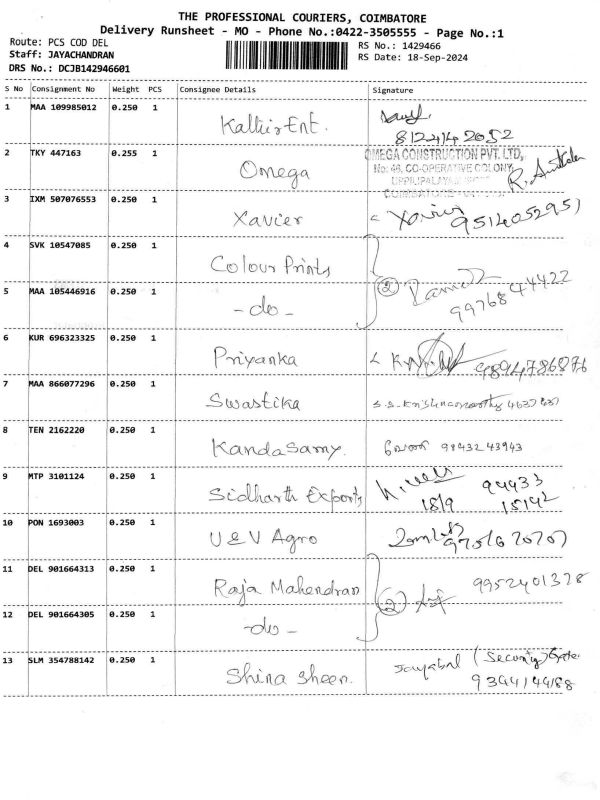 THE PROFESSIONAL COURIERS, COIMBATORE
Delivery Runsheet - MO - Phone No.:0422-3505555 - Page No.:1
Route: PCS COD DEL
RS No.: 1429466
Staff: JAYACHANDRAN
RS Date: 18-Sep-2024
DRS No.: DCJB142946601
S No Consignment No Weight PCS Consignee Details Signature
1 MAA 109985012 0.250 1
2 TKY 447163 0.255 1 Omega
OMEGA CONSTRUCTION PVT. LTD,
No: 46, CO-OPERATIVE COLONY,
3 IXM 507076553 0.250 1 Xavier Xavier 9514052951
4 SVK 10547085 0.250 1 Colour Prints
5 MAA 105446916 0.250 1 - do - 2
9976844422
6 KUR 696323325 0.250 1 Priyanka 9894786876
7 MAA 866077296 0.250 1 Swastika
8 TEN 2162220 0.250 1 Kandasamy. 9943243943
9 MTP 3101124 0.250 1 Sidharth Exports
18/9 94433 15142
10 PON 1693003 0.250 1 U & V Agro
11 DEL 901664313 0.250 1 Raja Mahendran 2 9952401328
12 DEL 901664305 0.250 1 - do -
13 SLM 354788142 0.250 1 Shina Sheen. (Security) Gate
9344144188